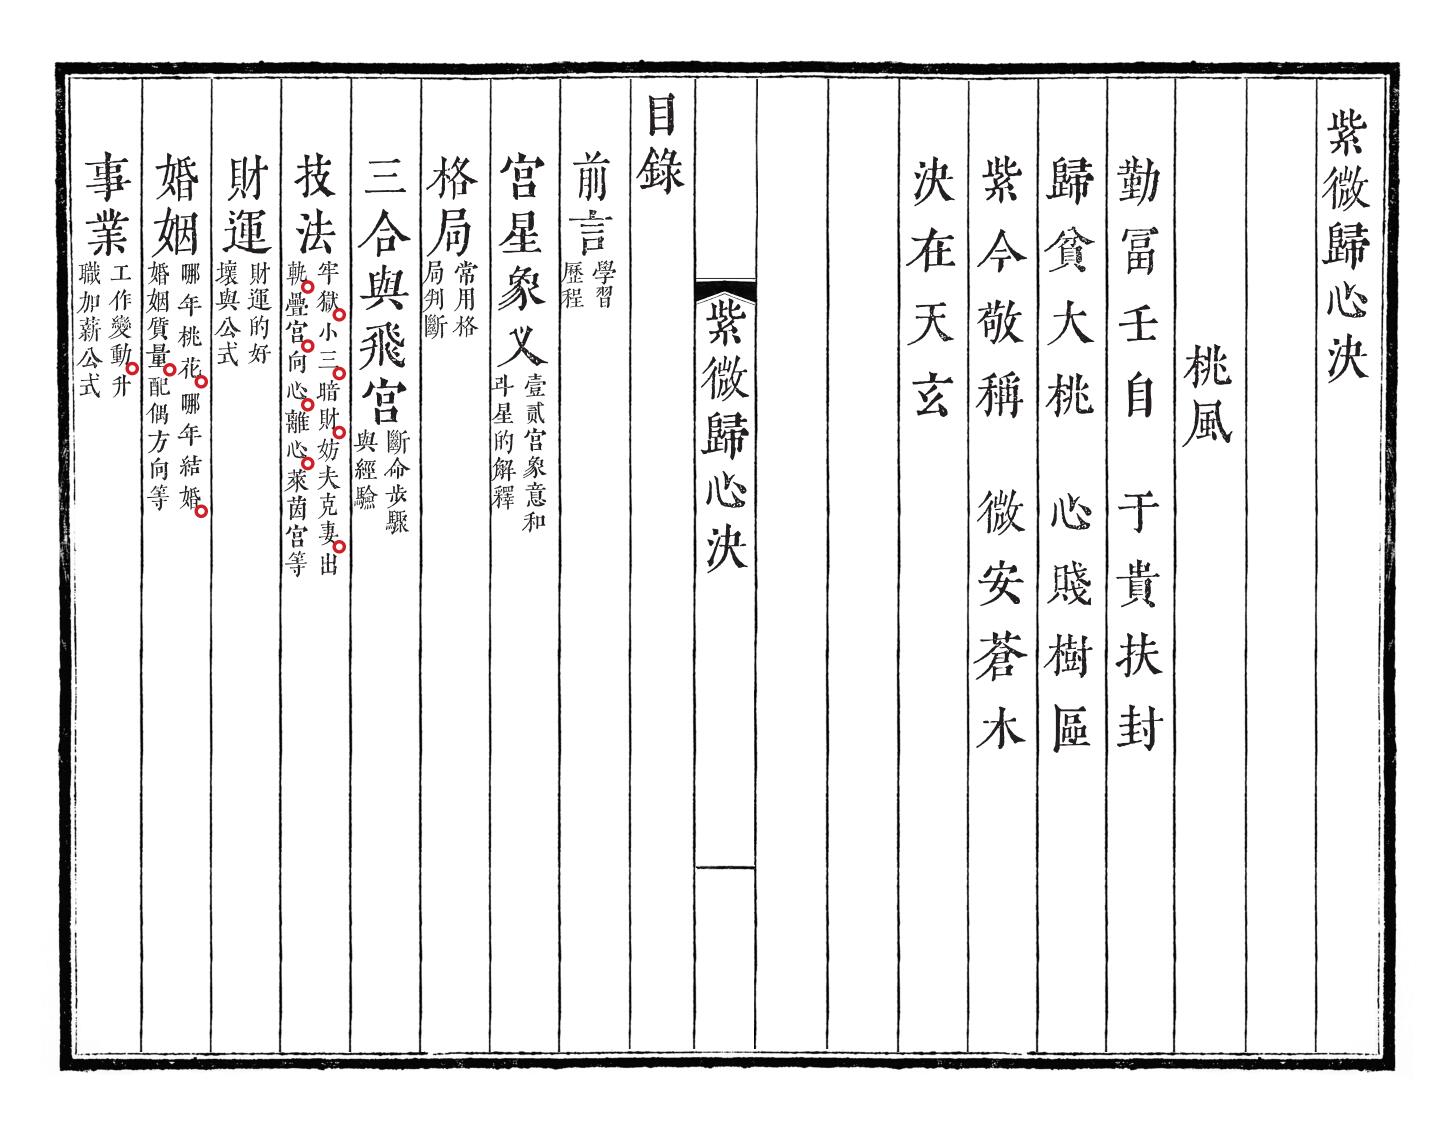 紫微歸心決
桃風
勤冨壬自 于貴扶封
歸貧大桃 心賤樹區
紫今敬稱 微安蒼木
決在天玄
紫微歸心決
目錄
前言 學習
歷程
宮星象义 壹贰宮象意和
斗星的解釋
格局 常用格
局判斷
三合與飛宮 斷命步驟
與經驗
技法 牢獄。小三。暗財。妨夫克妻。出
軌。疊宮。向心。離心。萊茵宮等
財運 財運的好
壞與公式
婚姻 哪年桃花。哪年結婚。
婚姻質量。配偶方向等
事業 工作變動。升
職加薪公式